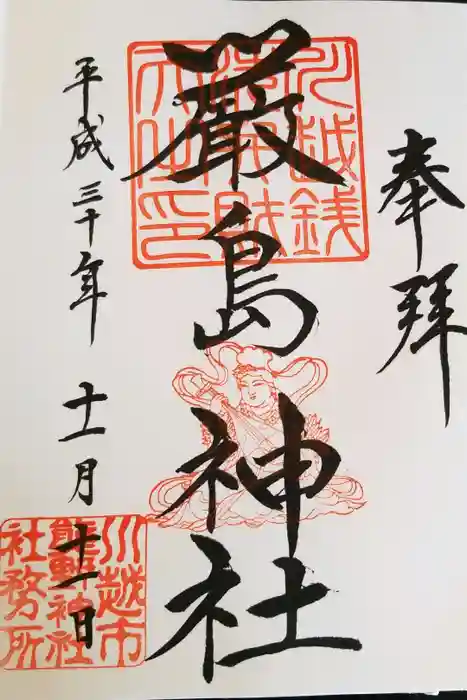 奉拝
川越銭
洗弁財
天之印
厳島神社
平成三十年 十一月 十一日
川越市
熊野神社
社務所